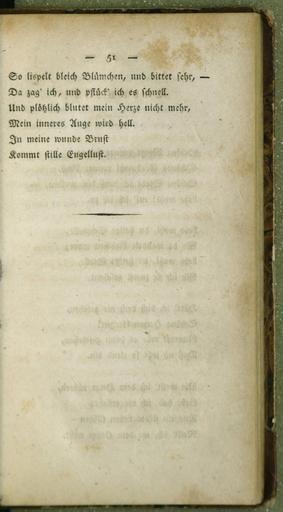 — 51 —
So lispelt bleich Blümchen, und bittet sehr, —
Da zag' ich, und pflück' ich es schnell.
Und plötzlich blutet mein Herze nicht mehr,
Mein inneres Auge wird hell.
In meine wunde Brust
Kommt stille Engellust.